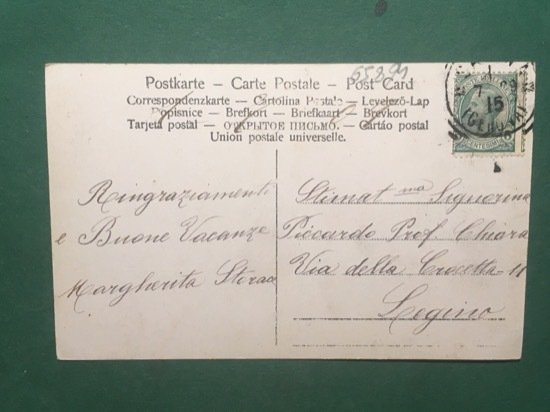 65894
Postkarte – Carte Postale – Post Card
Correspondenzkarte – Cartolina Postale – Levelező-Lap
Dopisnice – Brefkort – Briefkaart – Brevkort
Tarjeta postal – ОТКРЫТОЕ ПИСЬМО. – Cartão postal
Union postale universelle.
15
Ringraziamenti
e Buone Vacanze
Margherita Storace
Stimat ma Signorina
Piccardo Prof Chiara
Via della Crocetta - 11
Legino